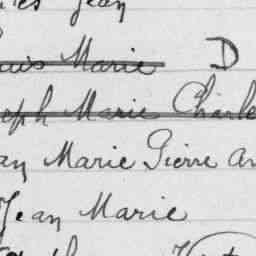 Jean
Louis Marie D
Joseph Marie Charles
Jean Marie Pierre
Jean Marie